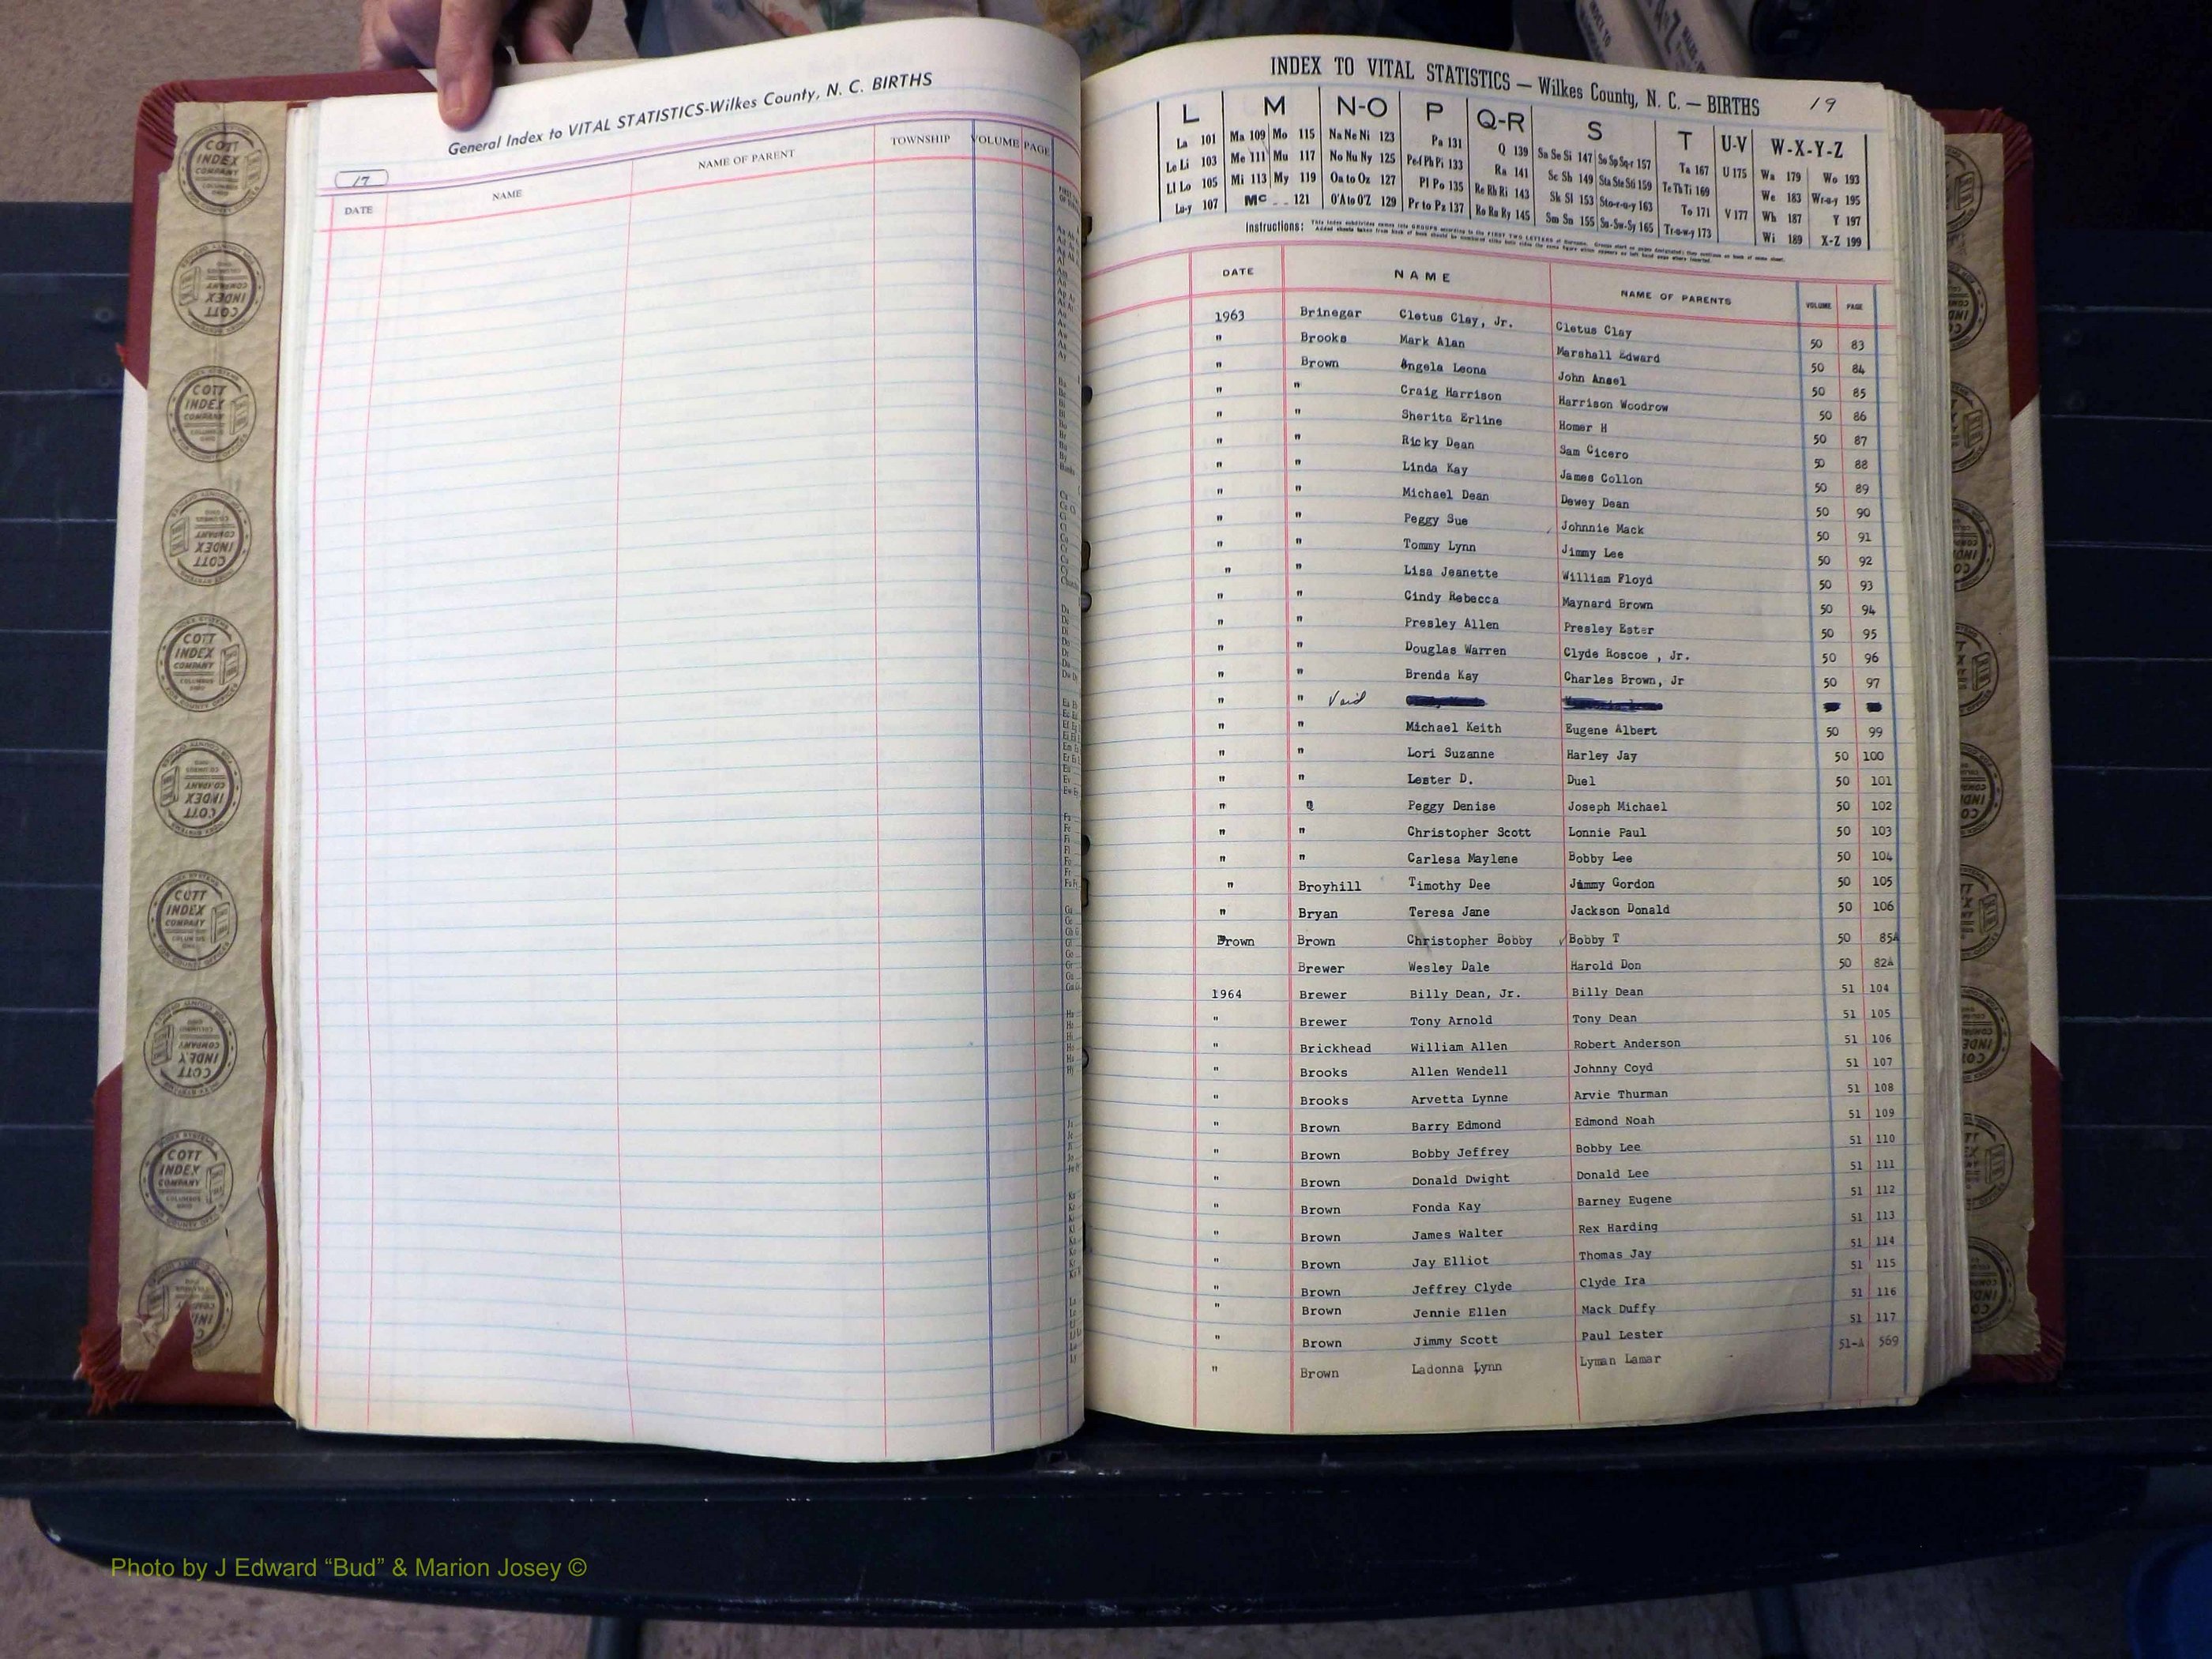 General Index to VITAL STATISTICS-Wilkes County, N. C. BIRTHS
17
DATE NAME NAME OF PARENT TOWNSHIP VOLUME PAGE
INDEX TO VITAL STATISTICS — Wilkes County, N. C. — BIRTHS 19
L M N-O P Q-R S T U-V W-X-Y-Z
La 101 Ma 109 Mo 115 Na Ne Ni 123 Pa 131 Q 139 Sa Se Si 147 So Sp Sq-r 157 Ta 167 U 175 Wa 179 Wo 193
Le Li 103 Me 111 Mu 117 No Nu Ny 125 Pe-f Ph Pi 133 Ra 141 Sc Sh 149 Sta Ste Sti 159 Te Th Ti 169 We 183 Wr-u-y 195
Ll Lo 105 Mi 113 My 119 Oa to Oz 127 Pl Po 135 Re Rh Ri 143 Sk Sl 153 Sto-r-u-y 163 To 171 V 177 Wh 187 Y 197
Lu-y 107 Mc 121 O'A to O'Z 129 Pr to Pz 137 Ro Ru Ry 145 Sm Sn 155 Su-Sw-Sy 165 Tr-u-w-y 173 Wi 189 X-Z 199
Instructions:
DATE NAME NAME OF PARENTS VOLUME PAGE
1963 Brinegar Cletus Clay, Jr. Cletus Clay 50 83
" Brooks Mark Alan Marshall Edward 50 84
" Brown Angela Leona John Ansel 50 85
" " Craig Harrison Harrison Woodrow 50 86
" " Sherita Erline Homer H 50 87
" " Ricky Dean Sam Cicero 50 88
" " Linda Kay James Collon 50 89
" " Michael Dean Dewey Dean 50 90
" " Peggy Sue Johnnie Mack 50 91
" " Tommy Lynn Jimmy Lee 50 92
" " Lisa Jeanette William Floyd 50 93
" " Cindy Rebecca Maynard Brown 50 94
" " Presley Allen Presley Ester 50 95
" " Douglas Warren Clyde Roscoe , Jr. 50 96
" " Brenda Kay Charles Brown, Jr 50 97
" " Void
" " Michael Keith Eugene Albert 50 99
" " Lori Suzanne Harley Jay 50 100
" " Lester D. Duel 50 101
" Peggy Denise Joseph Michael 50 102
" " Christopher Scott Lonnie Paul 50 103
" " Carlesa Maylene Bobby Lee 50 104
" Broyhill Timothy Dee Jimmy Gordon 50 105
" Bryan Teresa Jane Jackson Donald 50 106
Brown Brown Christopher Bobby Bobby T 50 85A
Brewer Wesley Dale Harold Don 50 82A
1964 Brewer Billy Dean, Jr. Billy Dean 51 104
" Brewer Tony Arnold Tony Dean 51 105
" Brickhead William Allen Robert Anderson 51 106
" Brooks Allen Wendell Johnny Coyd 51 107
" Brooks Arvetta Lynne Arvie Thurman 51 108
" Brown Barry Edmond Edmond Noah 51 109
" Brown Bobby Jeffrey Bobby Lee 51 110
" Brown Donald Dwight Donald Lee 51 111
" Brown Fonda Kay Barney Eugene 51 112
" Brown James Walter Rex Harding 51 113
" Brown Jay Elliot Thomas Jay 51 114
" Brown Jeffrey Clyde Clyde Ira 51 115
" Brown Jennie Ellen Mack Duffy 51 116
" Brown Jimmy Scott Paul Lester 51 117
" Brown Ladonna Lynn Lyman Lamar 51-A 569
COTT INDEX COMPANY
Photo by J Edward “Bud” & Marion Josey ©